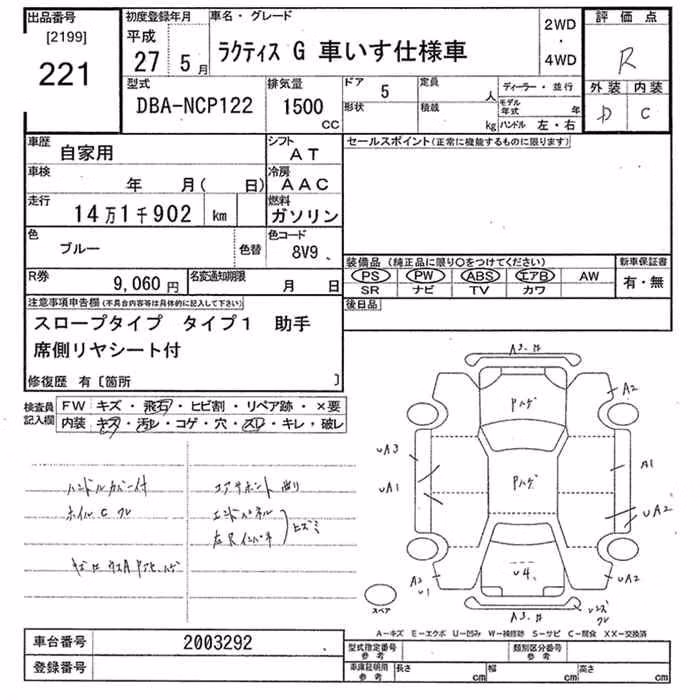 出品番号
[2199]
221
初度登録年月
平成
27 5月
車名・グレード
ラクティス G 車いす仕様車
2WD
・
4WD
評価点
R
外装 内装
D C
型式
DBA-NCP122
排気量
1500
CC
ドア 5
形状
定員 人
積載 kg
ディーラー・並行
モデル年式 年
ハンドル 左・右
車歴
自家用
シフト
AT
セールスポイント(正常に機能するものに限ります)
車検
年 月( 日)
冷房
AAC
走行
14万1千902 km
燃料
ガソリン
色
ブルー
色替
色コード
8V9
装備品(純正品に限り○をつけてください)
PS PW ABS エアB AW
SR ナビ TV カワ
新車保証書
有・無
R券
9,060円
名変通知期限
月 日
後日品
注意事項申告欄(不具合内容等は具体的に記入して下さい)
スロープタイプ タイプ1 助手
席側リヤシート付
修復歴 有〔箇所 〕
検査員
記入欄
FW キズ・飛石・ヒビ割・リペア跡・×要
内装 キズ・汚レ・コゲ・穴・スレ・キレ・破レ
ハンドルカバー付
ホイルC クレ
エンドパネル
左Rインパネ
ヒズミ
A2
Pハゲ
uA3
A1
uA1
Pハゲ
uA2
A2
u1
u4
uA2
スペア
A-キズ E-エクボ U-凹み W-補修跡 S-サビ C-腐食 XX-交換済
車台番号
2003292
型式指定番号
参考
類別区分番号
参考
登録番号
車庫証明用
参考
長さ cm
幅 cm
高さ cm